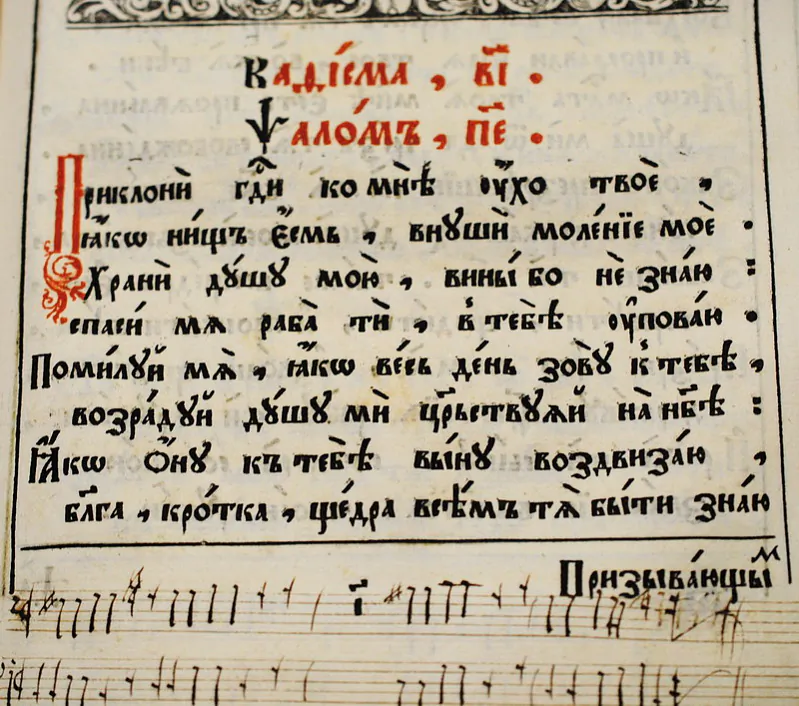 Каѳі́сма , в҃і .
Ѱало́мъ , п҃е .
Приклонѝ гдⷭ҇и ко мнѣ̀ ѹ҆́хо твоѐ ,
ꙗ҆́кѡ ни́щъ є҆́смь , внꙋшѝ моле́нїе моѐ .
Хранѝ дꙋ́шꙋ мою̀ , вины́ бо не зна́ю :
спасѝ мѧ раба̀ тѝ , в̾ тебѣ̀ ѹ҆пова́ю .
Поми́лꙋй мѧ̀ , ꙗ҆́кѡ ве́сь де́нь зовꙋ̀ к̾ тебѣ̀ ,
возра́дꙋй дꙋ́шꙋ мѝ цр҃ьствꙋѧй на̀ нб҃ѣ :
Ꙗ҆́кѡ ѻ҆́нꙋ къ тебѣ̀ вы́нꙋ воздвиза́ю ,
бл҃га , кро́тка , ще́дра всѣ́мъ тѧ̀ бы́ти зна́ю
Призыва́ющыⷨ